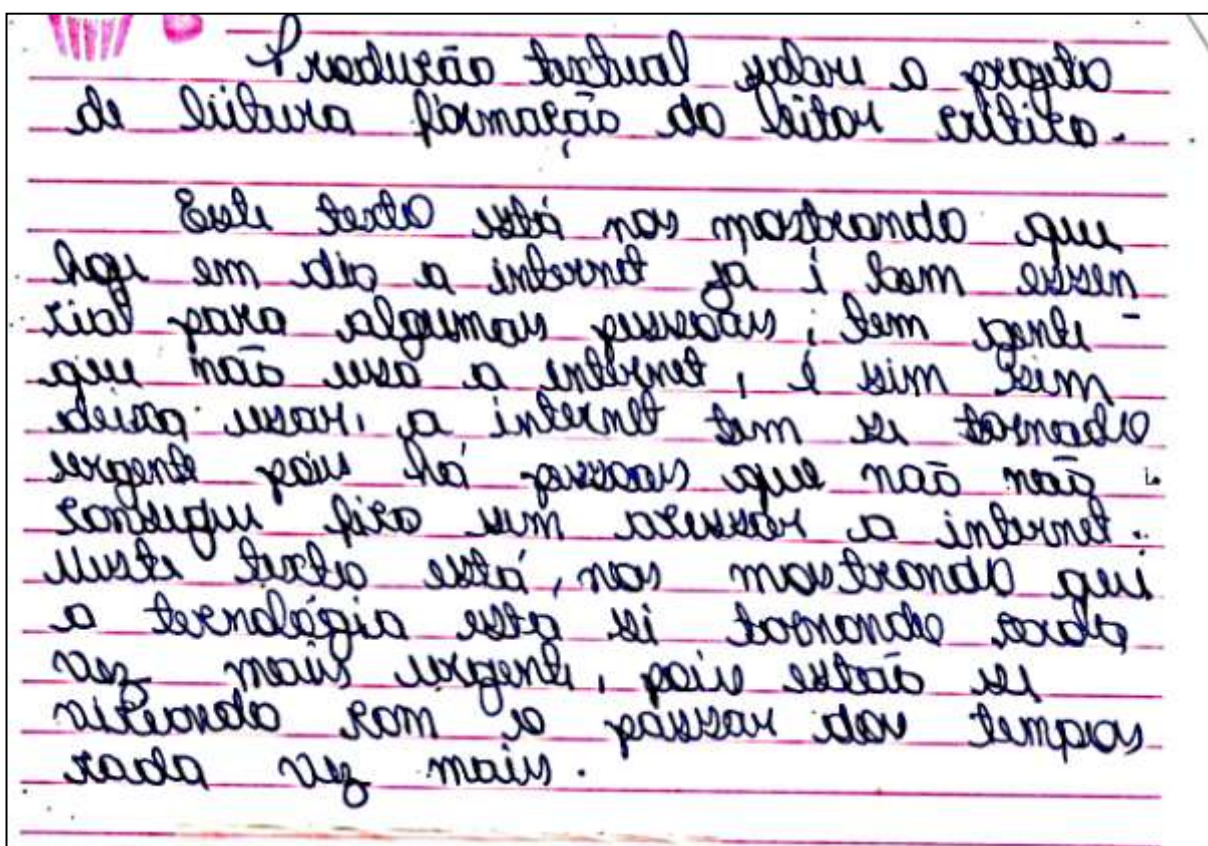 Produrção textual sobre o projeto
de liitura formação do leitor crítico.
Esse texto está nos mostrando que
hoje em dia a internet já é bem essen
cial para algumas pessoas, tem gente
que não usa a internet, e sim sim
usar, a internet tem se tornado
urgente pois há pessoas que não não
consegue fica sem acessar a internet.
Neste texto está, nos mostrando que
a ternológia esta se tornando cada
vez mais urgente, pois estão se
viciando com o passar dos tempos
cada vez mais.